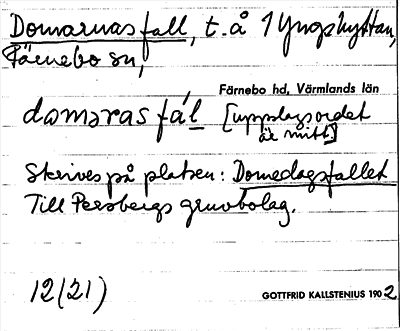 Domarnas fall, t. å 1 Yngshyttan,
Färnebo sn,
Färnebo hd, Värmlands län
damaras fál [uppslagsordet
är mitt.]
Skrives på platsen: Domedagsfallet
Till Persbergs gruvbolag.
12(21)
GOTTFRID KALLSTENIUS 1902